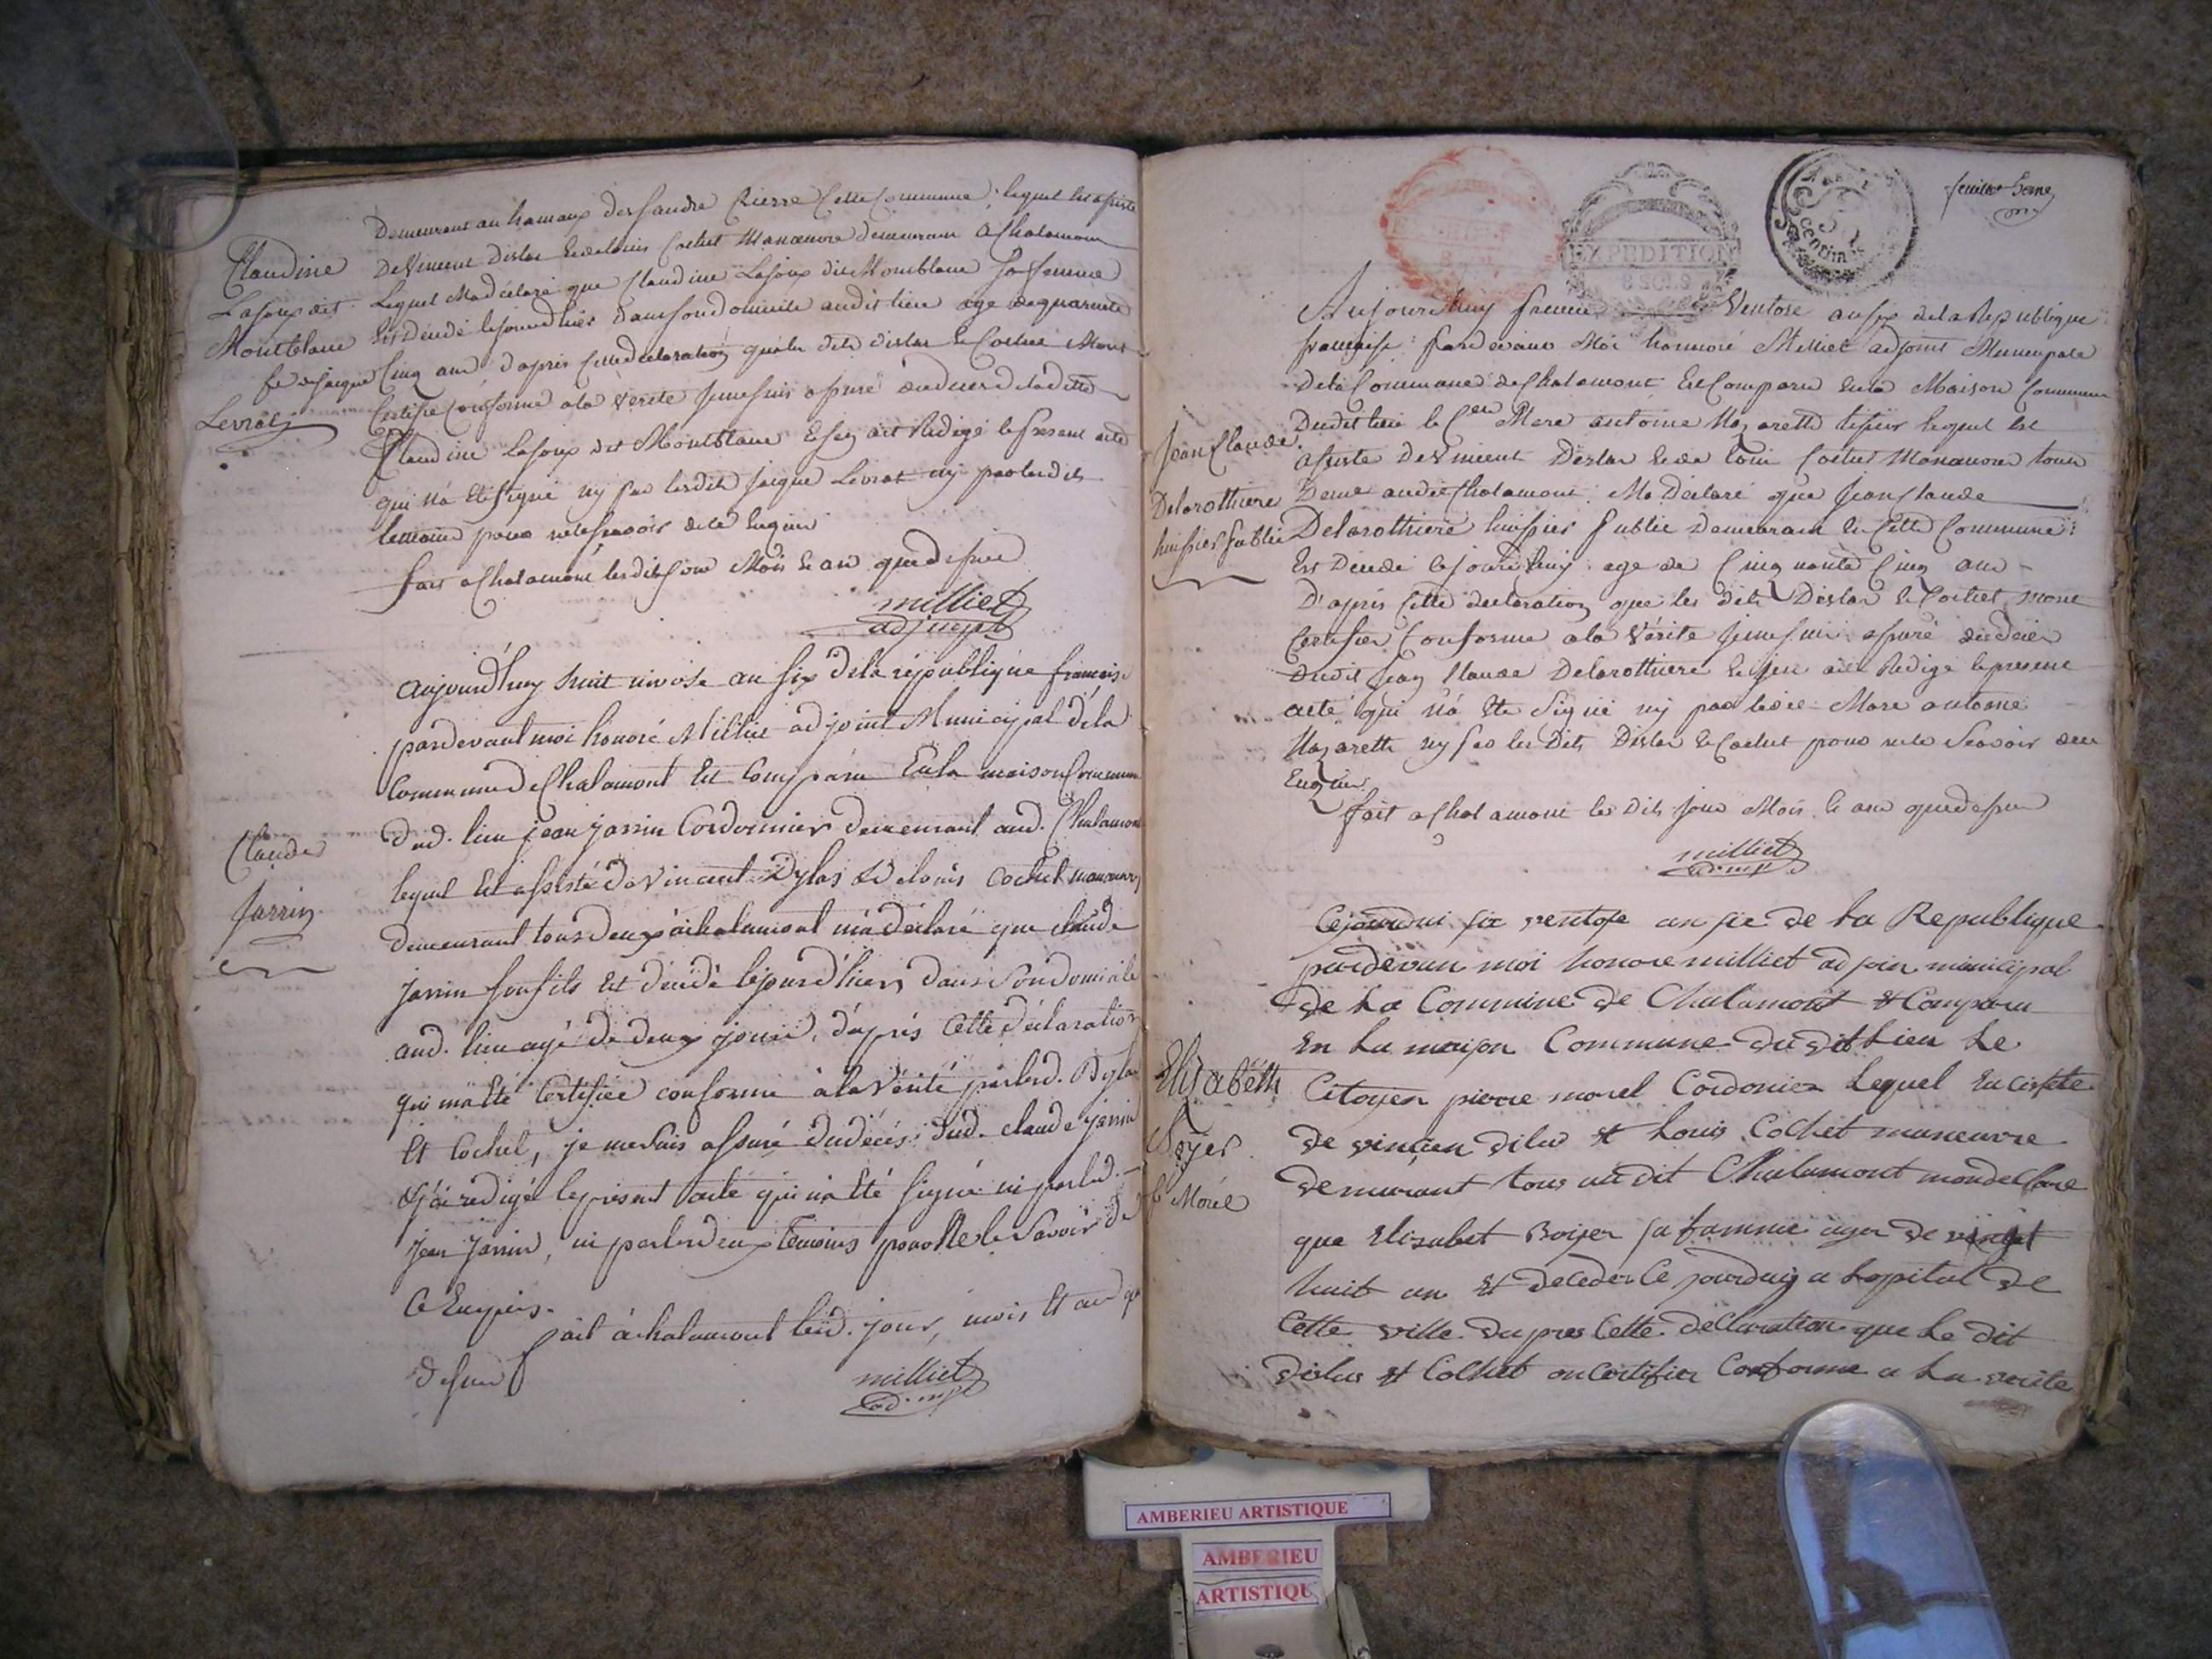 Demeurant au hamaux des fandre Pierre Cette Commune, lequel
Claudine
Lajoux dit
Montblanc
fe de jacque
Levrat
De Vincent Dislas Et de Louis Cochet Manœuvre demeurant A Chalamont
Lequel Ma déclaré que Claudine Lajoux dit Montblanc Sa femme
Est décédé le jour d'hier dans son domicile audit lieu age de quarente
Cinq ans d'apres Cette declaration que les dits dislas Et Cochet Mont
Certifié Conforme a la Verite je me suis assuré du deces de ladite
Claudine Lajoux dit Montblanc Et j'en ait Redigé le présent acte
qui n'a Eté signé ny par lesdits jacque Levrat ny par lesdits
temoins pour ne le savoir de ce Enquis
fait a Chalamont lesdits jour Mois Et an que dessus
milliet
adj mpl
Claude
Jarrin
aujourd'huy huit nivose an six de la république francaise
pardevant moi honoré Milliet adjoint Municipal de la
Commune de Chalamont Est Comparu En la maison Commune
dud. lieu jean jarrin Cordonnier demeurant aud. Chalamont
lequel Est assisté de Vincent Dylas & de louis Cochet manœuvres
demeurant tous deux à chalamont m'a déclaré que claude
jarrin son fils Est décédé le jour d'hier dans son domicile
aud. lieu agé de deux jours, d'après Cette déclaration
qui m'a Eté Certifiée conforme à la Vérité par lesd. Dylas
Et Cochet, je me suis assuré du décès dud. claude jarrin
& j'ai redigé le présent acte qui n'a Eté signé ni par led.
jean jarrin, ni par les deux temoins pour Ne le Savoir de
Ce Enquis.
fait à chalamont lesd. jour, mois Et an que
dessus
milliet
ad. mpl
EXPEDITION
centim
Aujourd'huy Ventose an six de la Republique
francaise: Pardevant Moi honnoré Milliet adjoint Municipale
De la Commune de Chalamont Est Comparu En la Maison Commune
Jean Claude
Delarothiere
huissier Public
Dudit lieu le Cen Marc antoine Nazareth lequel Est
assisté De Vincent Dislas Et de Louis Cochet Manœuvre tous
Deux audit Chalamont. Ma Déclaré que Jean Claude
Delarothiere huissier Public Demeurant En Cette Commune
Est Décédé le jourd'huy age de Cinquante Cinq ans
D'apres Cette declaration que les dits Dislas Et Cochet mont
Certifier Conforme a la Vérite je me suis assuré du deces
Dudit Jean Claude Delarothiere Et j'en ait Redigé le present
acte qui n'a Eté Signé ny par ledit Marc antoine
Nazareth ny par les Dits Dislas Et Cochet pour ne le Scavoir de ce
Enquis
fait a Chalamont les Dits jour Mois Et an que dessus
milliet
ad. mpl
Elisabeth
Boyer
fe Morel
Cejourdui six ventose an sie de La Republique
pardevan moi honore milliet adjoin municipal
de La Commune de Chalamont Et Comparu
En La maison Commune du dit Lieu Le
Citoyen pierre morel Cordonier Lequel
de vincien dilas Et Louis Cochet maneuvre
demurant tous au dit Chalamont mon declare
que Elisabet Boyer sa famme agee de vingt
huit an Et deceder Ce jourduy a Lopital de
Cette ville dapres Cette declaration que Le dit
dislas Et Cochet on Certifier Conforme a La verite
AMBERIEU ARTISTIQUE
AMBERIEU
ARTISTIQU